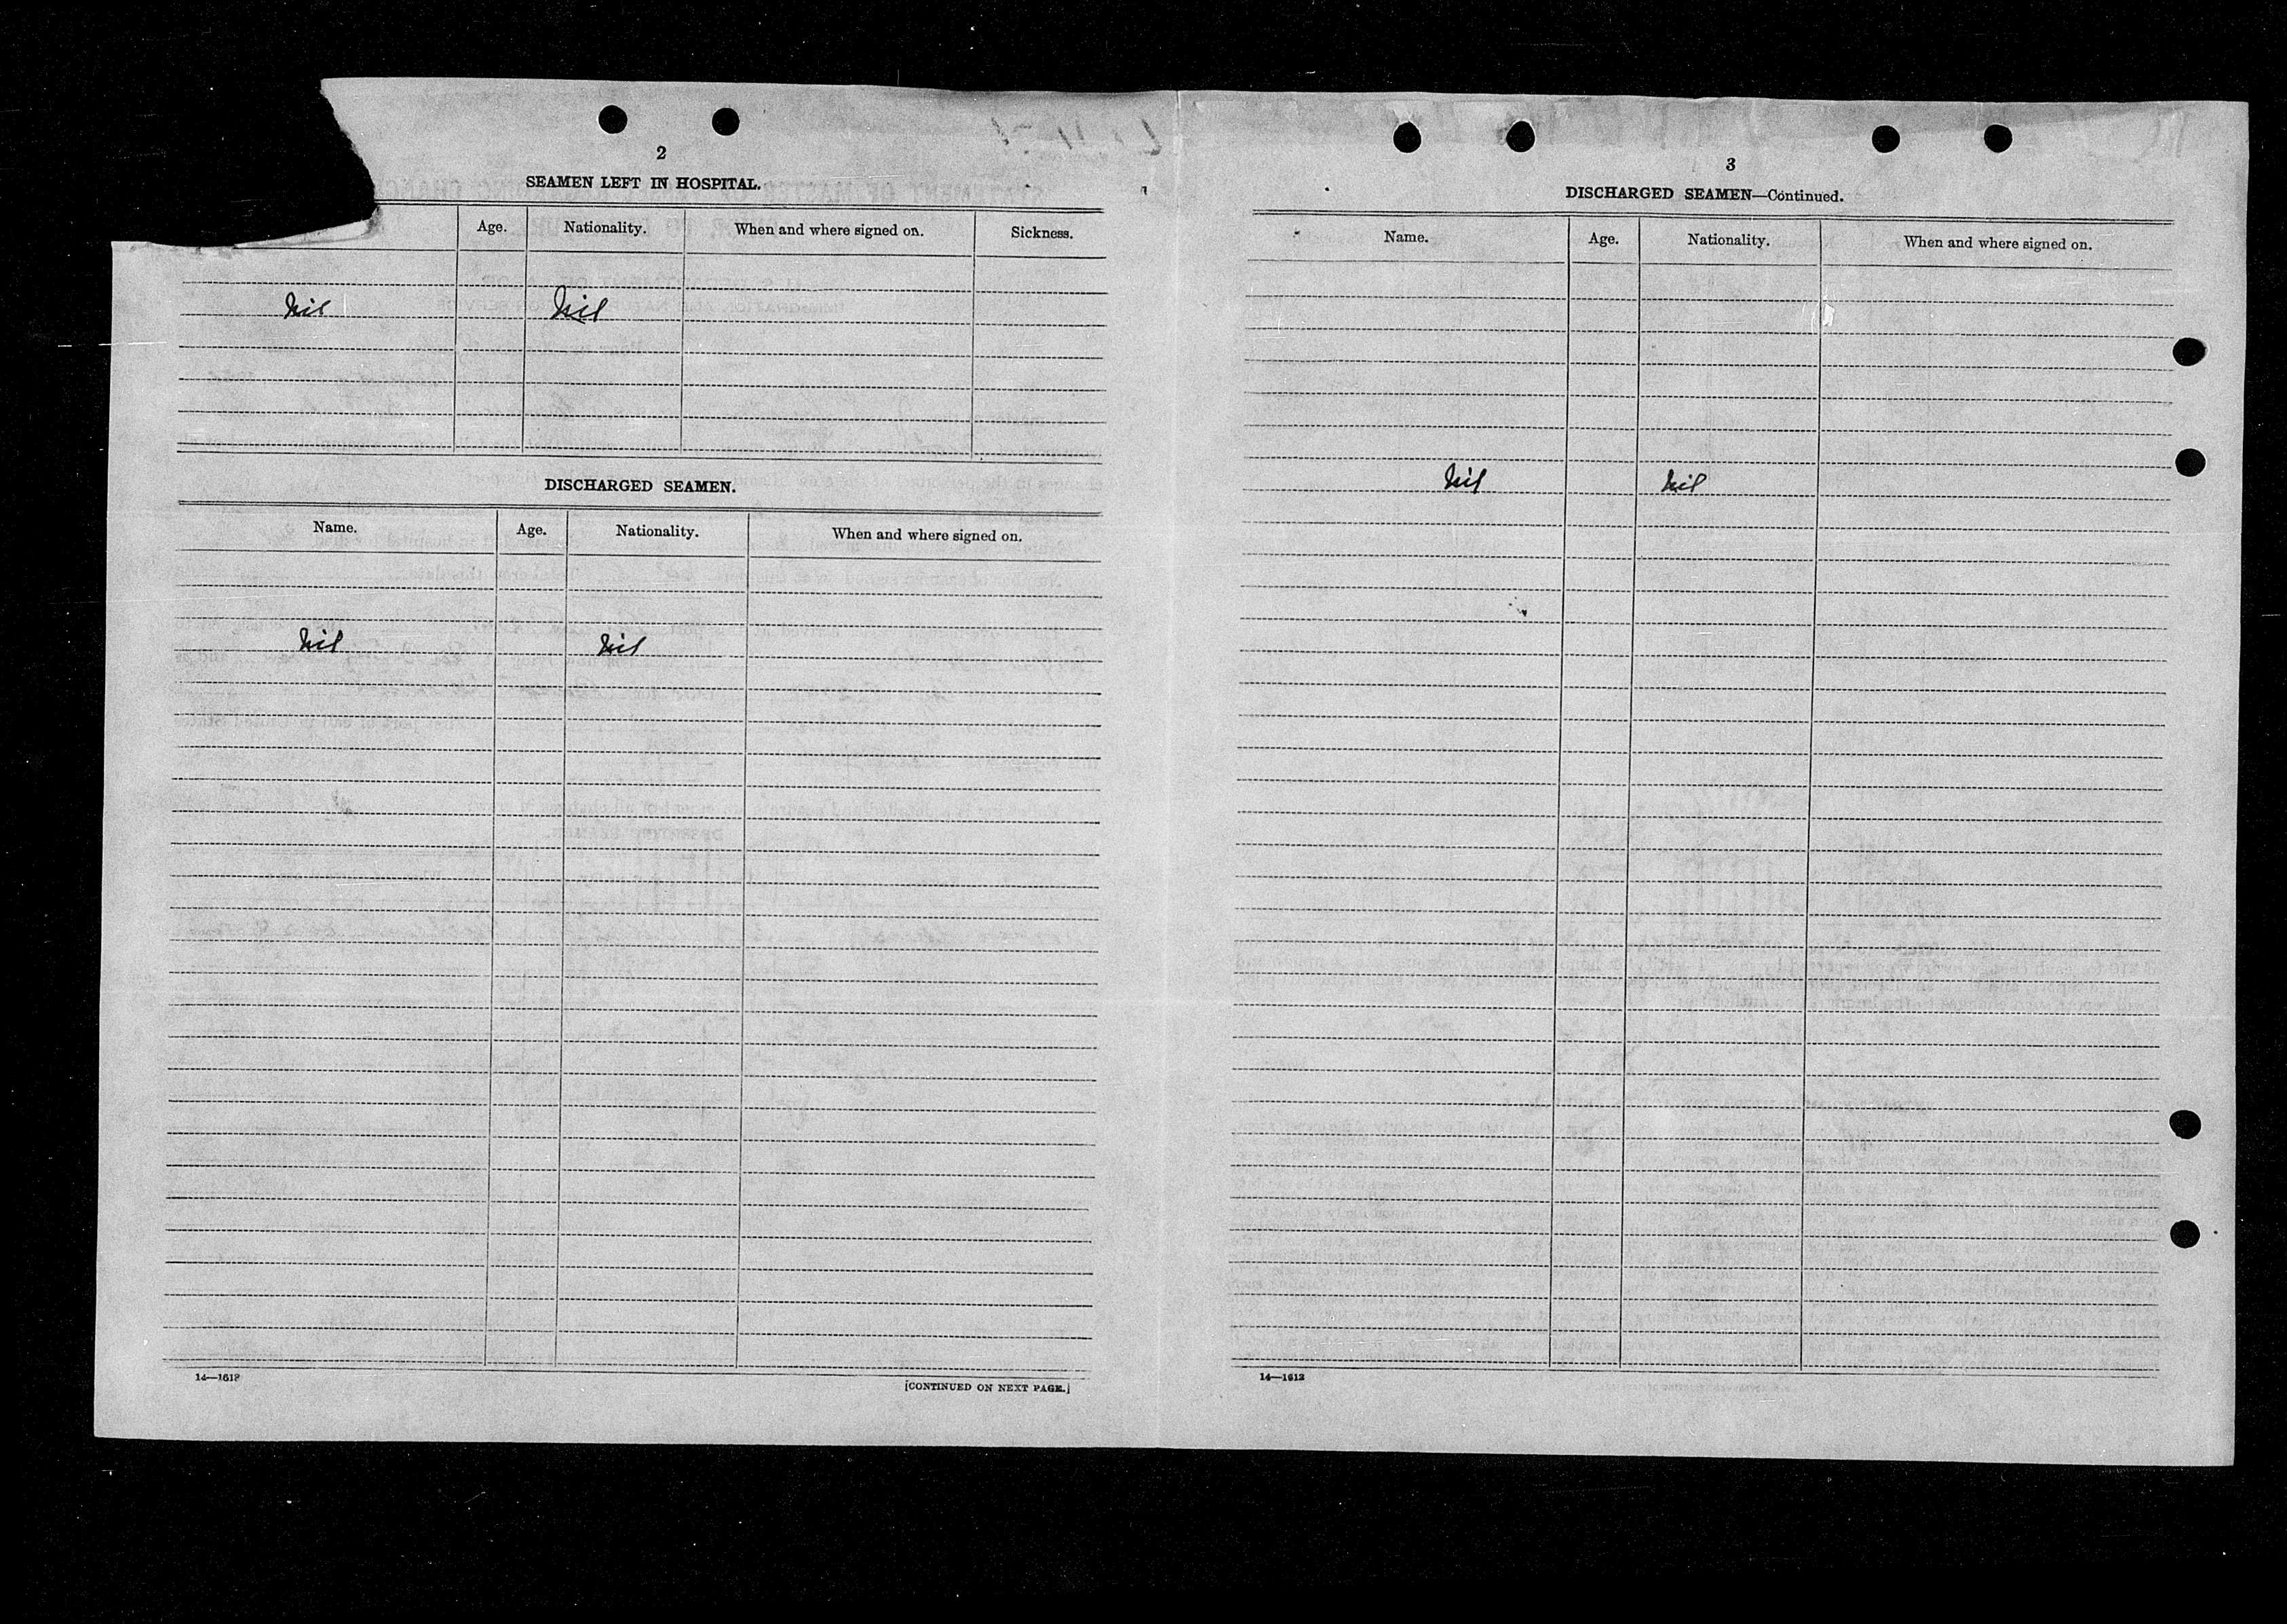 2
SEAMEN LEFT IN HOSPITAL.
Age. Nationality. When and where signed on. Sickness.
Nil Nil
DISCHARGED SEAMEN.
Name. Age. Nationality. When and where signed on.
Nil Nil
14—1612
[CONTINUED ON NEXT PAGE.]
3
DISCHARGED SEAMEN—Continued.
Name. Age. Nationality. When and where signed on.
Nil Nil
14—1612